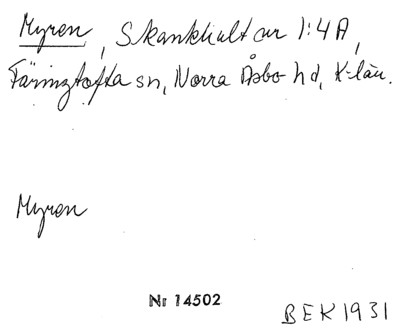 Myren, Skankhult ur 1:4 A,
Färingtofta sn, Norra Åsbo hd, K-län.
Myren
Nr 14502
BEK 1931